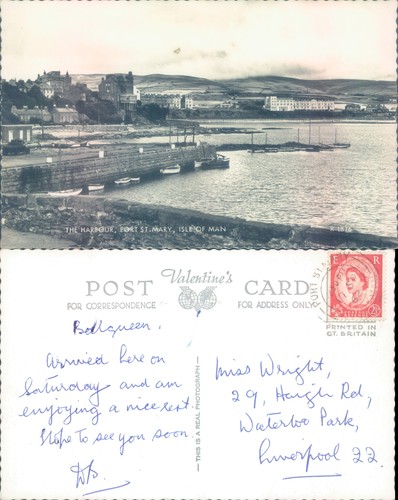 THE HARBOUR, PORT ST. MARY, ISLE OF MAN
POST Valentine's CARD
FOR CORRESPONDENCE FOR ADDRESS ONLY
E R
PORT
PRINTED IN
GT. BRITAIN
THIS IS A REAL PHOTOGRAPH
Ballqueen.
Arrived here on
Saturday and am
enjoying a nice rest.
Hope to see you soon.
Miss Wright,
29, Haigh Rd,
Waterloo Park,
Liverpool 22.